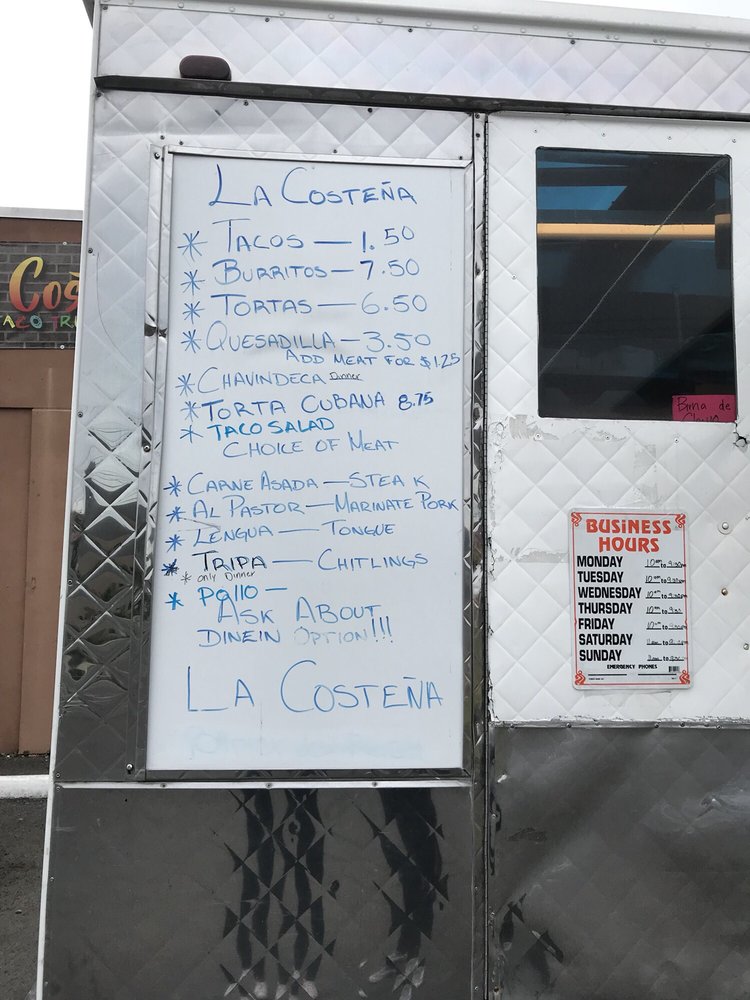 LA COSTEÑA
* TACOS — 1.50
* BURRITOS — 7.50
* TORTAS — 6.50
* QUESADILLA — 3.50
ADD MEAT FOR $1.25
* CHAVINDECA Dinner
* TORTA CUBANA 8.75
* TACO SALAD
CHOICE OF MEAT
* CARNE ASADA — STEAK
* AL PASTOR — MARINATE PORK
* LENGUA — TONGUE
* TRIPA — CHITLINGS
* only Dinner
* Pollo —
ASK ABOUT
DINEIN OPTION!!!
LA COSTEÑA
Cos
ACO TR
de
BUSINESS
HOURS
MONDAY
TUESDAY
WEDNESDAY
THURSDAY
FRIDAY
SATURDAY
SUNDAY
EMERGENCY PHONES